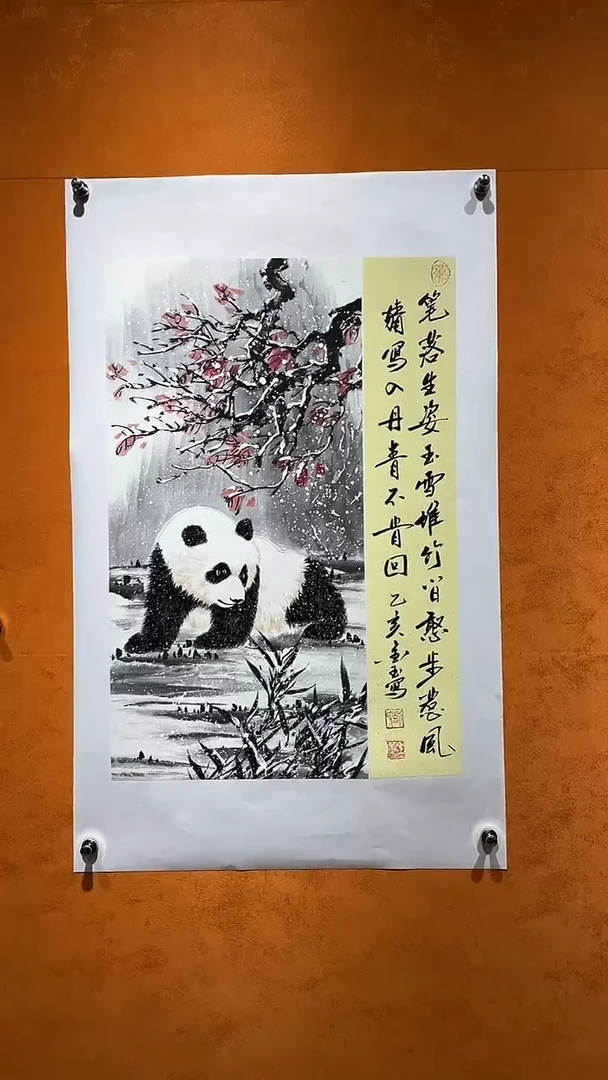 笔落生姿玉雪堆竹间憨步惹风
情写入丹青不肯回乙亥金玉写